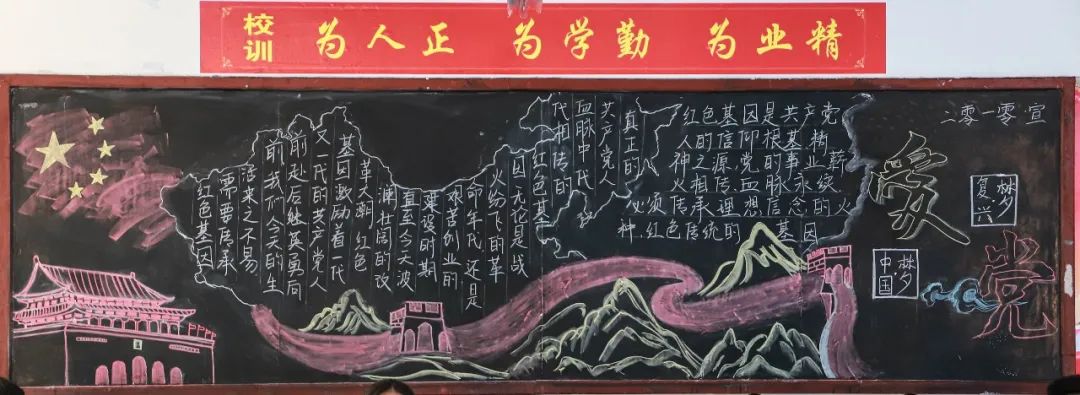 校训
为人正 为学勤 为业精
二零一零宣
爱党
复兴梦
中国梦
红色基因是共产党
人的信仰根基精
神之源,党的事业薪
火相传.血脉永续
必须传承理想信念的火
种.红色传统的基因
真正的
共产党人
血脉中代
代相传的
红色基
因无论是战
火纷飞的革
命年代还是
艰苦创业的
建设时期
直至今天波
澜壮阔的改
革大潮 红色
基因激励着一代
又一代的共产党人
前赴后继英勇向
前我们今天的生
活来之不易
需要传承
红色基因